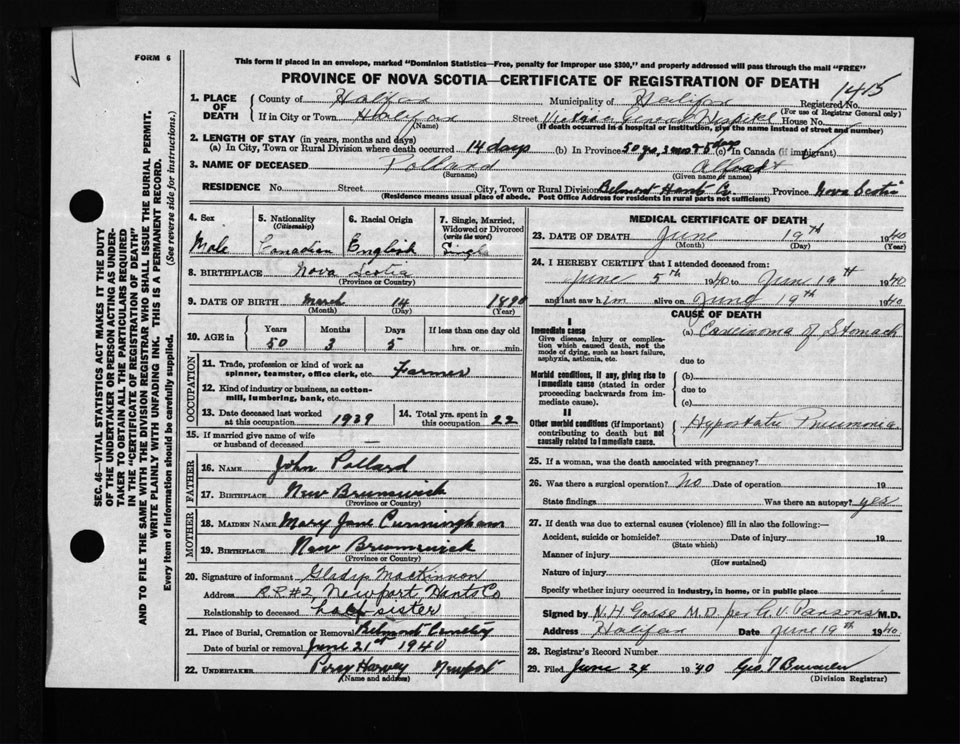 FORM 6
This form if placed in an envelope, marked "Dominion Statistics—Free, penalty for improper use $300," and properly addressed will pass through the mail "FREE"
PROVINCE OF NOVA SCOTIA—CERTIFICATE OF REGISTRATION OF DEATH
1415
1. PLACE OF DEATH
County of Halifax Municipality of Halifax Registered No.
(For use of Registrar General only)
If in City or Town Halifax Street Victoria General Hospital House No.
(Name) (If death occurred in a hospital or institution, give the name instead of street and number)
2. LENGTH OF STAY (in years, months and days)
(a) In City, Town or Rural Division where death occurred 14 days (b) In Province 50 yrs, 3 mos & 5 days (c) In Canada (if immigrant)
3. NAME OF DECEASED Pollard
(Surname) (Given name or names)
RESIDENCE No. Street City, Town or Rural Division Belmont Hants Co Province Nova Scotia
(Residence means usual place of abode. Post Office Address for residents in rural parts not sufficient)
4. Sex
Male
5. Nationality
(Citizenship)
Canadian
6. Racial Origin
English
7. Single, Married, Widowed or Divorced
(write the word)
Single
8. BIRTHPLACE Nova Scotia
(Province or Country)
9. DATE OF BIRTH March 14 1890
(Month) (Day) (Year)
10. AGE in
Years Months Days If less than one day old
50 3 5 hrs. or min.
OCCUPATION
11. Trade, profession or kind of work as
spinner, teamster, office clerk, etc. Farmer
12. Kind of industry or business, as cotton-
mill, lumbering, bank, etc.
13. Date deceased last worked
at this occupation 1939
14. Total yrs. spent in
this occupation 22
15. If married give name of wife
or husband of deceased —
FATHER
16. NAME John Pollard
17. BIRTHPLACE New Brunswick
(Province or Country)
MOTHER
18. MAIDEN NAME Mary Jane Cunningham
19. BIRTHPLACE New Brunswick
(Province or Country)
20. Signature of informant Gladys MacKinnon
Address R.R #2, Newport Hants Co
Relationship to deceased half sister
21. Place of Burial, Cremation or Removal Belmont Cemetery
Date of burial or removal June 21st 1940
22. UNDERTAKER Percy Harvey Newport
(Name and address)
MEDICAL CERTIFICATE OF DEATH
23. DATE OF DEATH June 19th 1940
(Month) (Day) (Year)
24. I HEREBY CERTIFY that I attended deceased from:
June 5th 1940 to June 19th 1940
and last saw him alive on June 19th 1940
CAUSE OF DEATH
I
Immediate cause
Give disease, injury or complica-
tion which caused death, not the
mode of dying, such as heart failure,
asphyxia, asthenia, etc.
(a) Carcinoma of Stomach
due to
Morbid conditions, if any, giving rise to
immediate cause (stated in order
proceeding backwards from im-
mediate cause).
(b)
due to
(c)
II
Other morbid conditions (if important)
contributing to death but not
causally related to immediate cause.
Hypostatic Pneumonia
25. If a woman, was the death associated with pregnancy?
26. Was there a surgical operation? no Date of operation 19
State findings Was there an autopsy? yes
27. If death was due to external causes (violence) fill in also the following:—
Accident, suicide or homicide? Date of injury 19
(State which)
Manner of injury
(How sustained)
Nature of injury
Specify whether injury occurred in industry, in home, or in public place
Signed by N. H. Gosse M.D. per G. V. Parsons M.D.
Address Halifax Date June 19th 1940
28. Registrar's Record Number
29. Filed June 24 1940
(Division Registrar)
SEC. 46—VITAL STATISTICS ACT MAKES IT THE DUTY
OF THE UNDERTAKER OR PERSON ACTING AS UNDER-
TAKER TO OBTAIN ALL THE PARTICULARS REQUIRED
IN THE "CERTIFICATE OF REGISTRATION OF DEATH"
AND TO FILE THE SAME WITH THE DIVISION REGISTRAR WHO SHALL ISSUE THE BURIAL PERMIT.
WRITE PLAINLY WITH UNFADING INK. THIS IS A PERMANENT RECORD.
Every item of information should be carefully supplied. (See reverse side for instructions.)